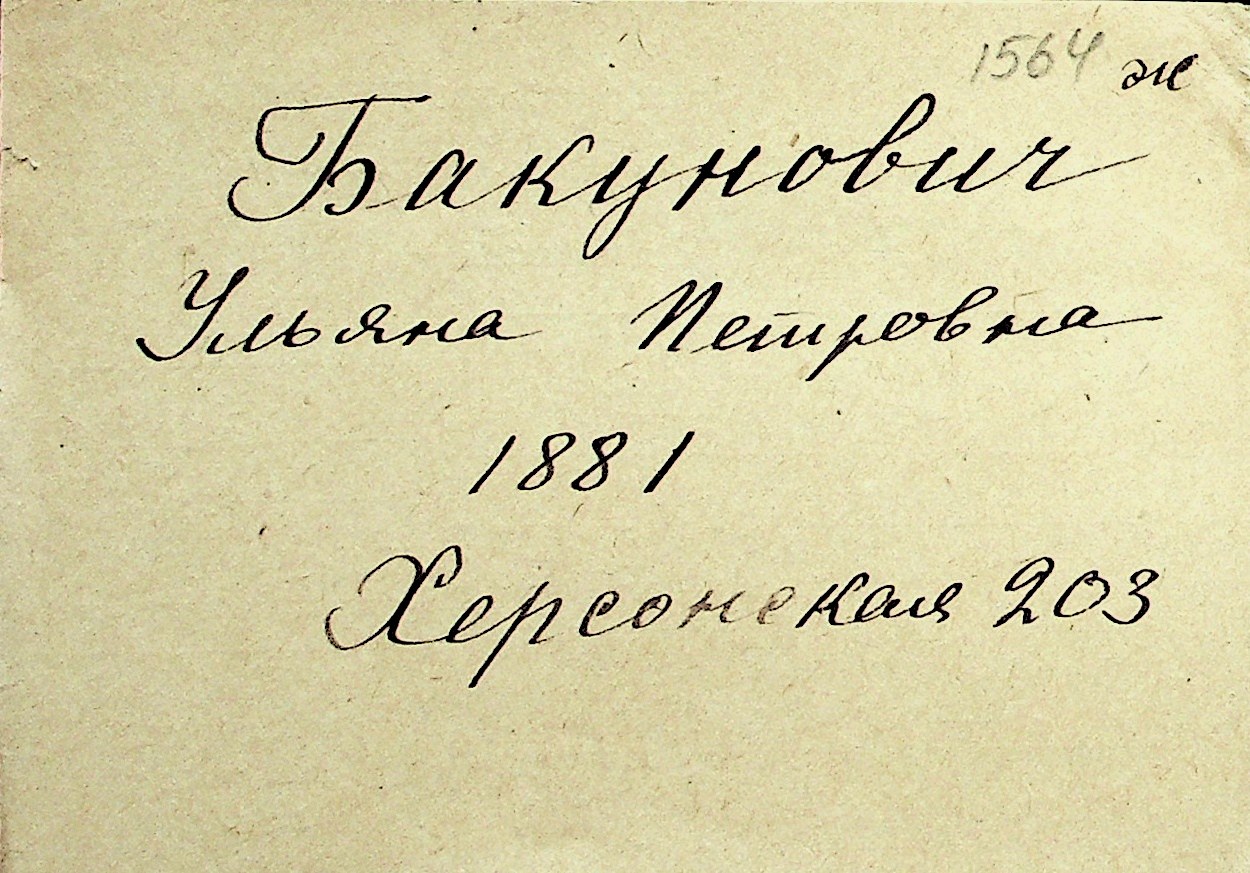 1564 ж
Бакунович
Ульяна Петровна
1881
Херсонская 203